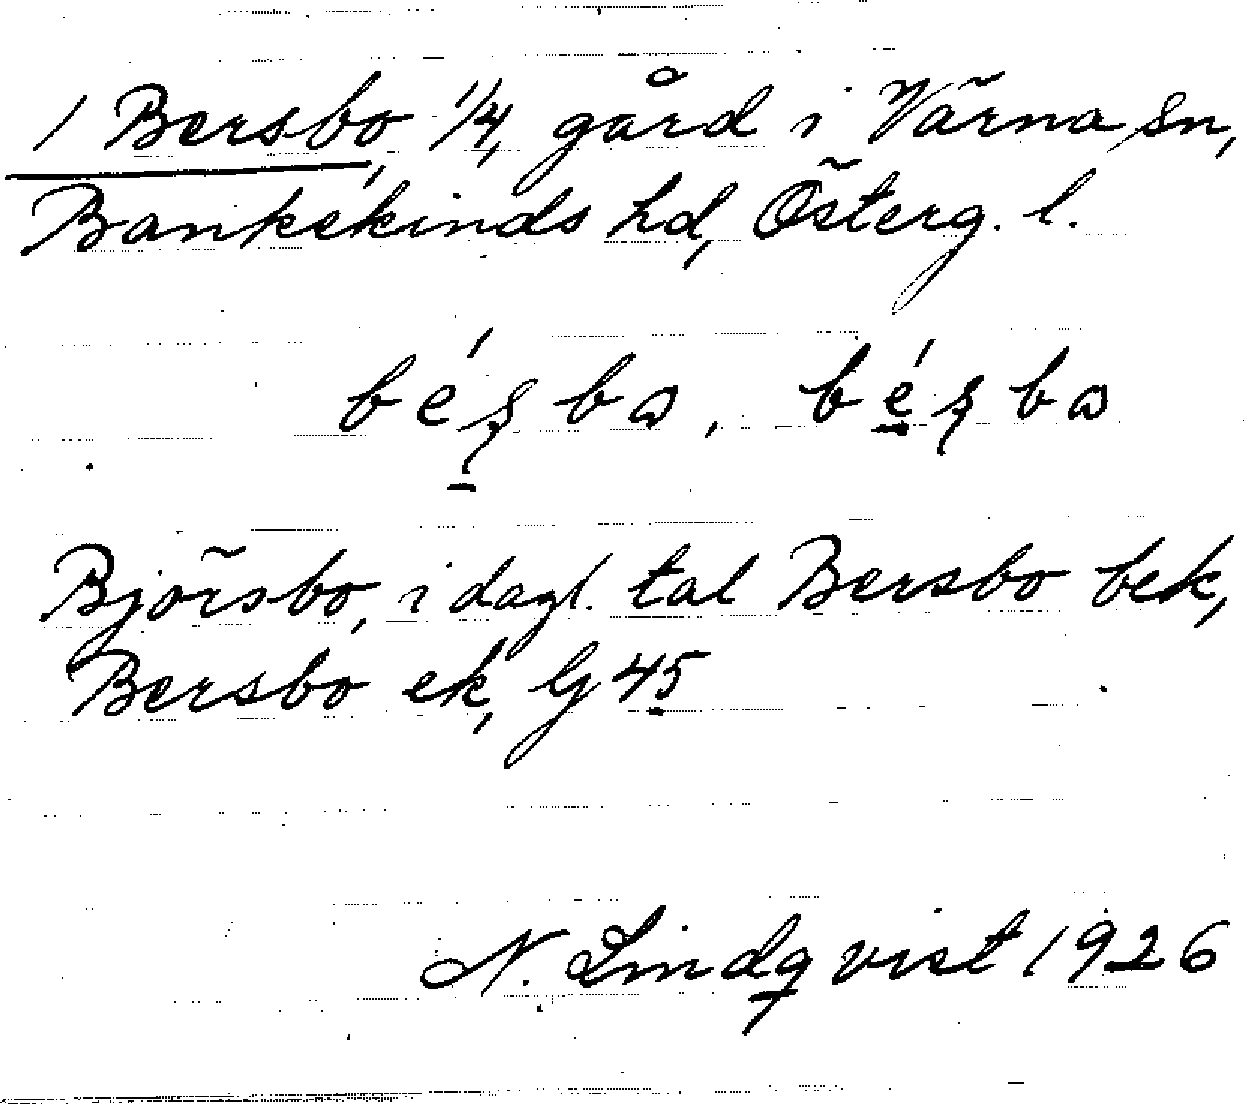 1 Bersbo, 1/4, gård i Värna sn,
Bankekinds hd, Österg. l.
bé̱ʂbɷ, bé̱ʂbɷ
Björsbo, i dagl. tal Bersbo bek,
Bersbo ek, G 45
N. Lindqvist 1926